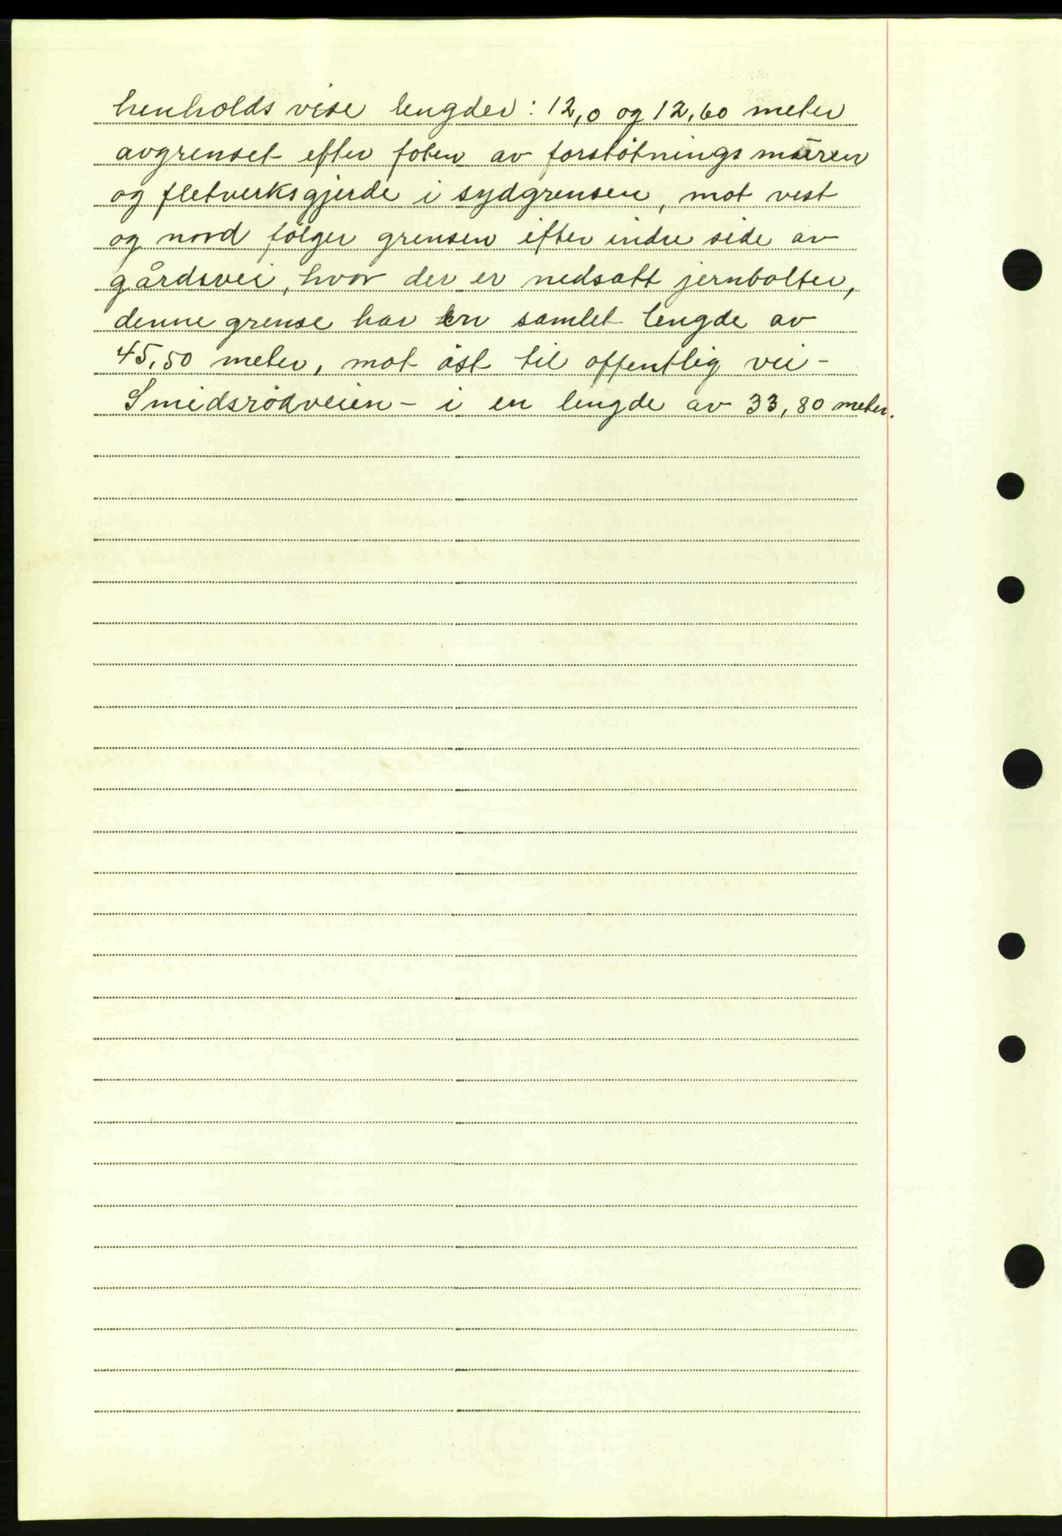 henholds vise lengder: 12,0 og 12,60 meter
avgrenset efter foten av forstøtnings muren
og fletverksgjerde i sydgrensen, mot vest
og nord følger grensen efter indre side av
gårdsvei, hvor der er nedsatt jernbolter,
denne grense har en samlet lengde av
45,50 meter, mot øst til offentlig vei -
Smidsrødveien - i en lengde av 33,80 meter.